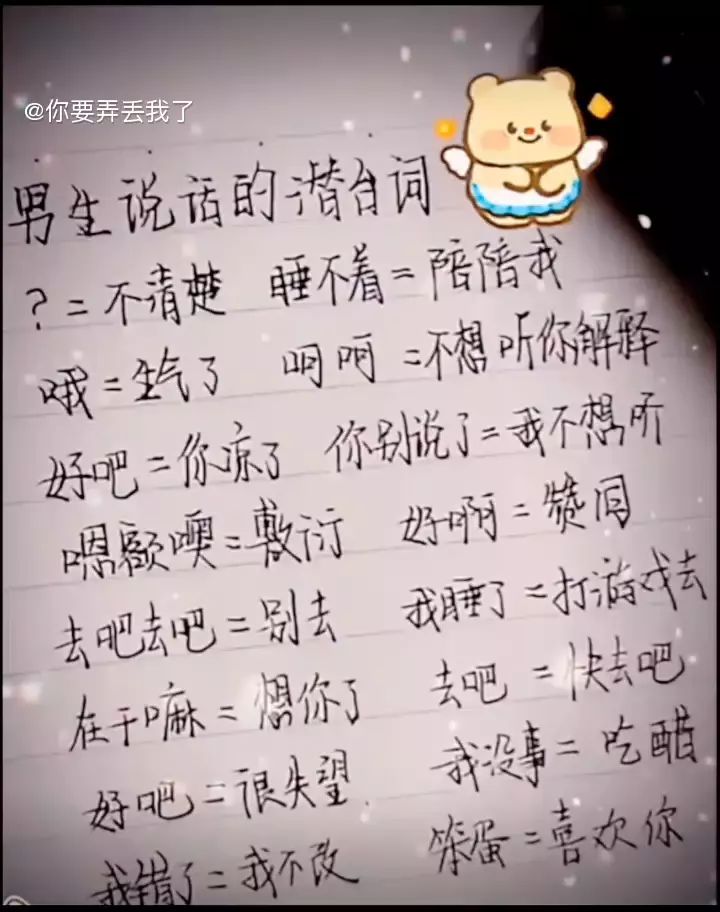 @你要弄丢我了
男生说话的潜台词
？=不清楚 睡不着=陪陪我
哦=生气了 呵呵=不想听你解释
好吧=你凉了 你别说了=我不想听
嗯额噢=敷衍 好啊=赞同
去吧去吧=别去 我睡了=打游戏去
在干嘛=想你了 去吧=快去吧
好吧=很失望 我没事=吃醋
我错了=我不改 笨蛋=喜欢你